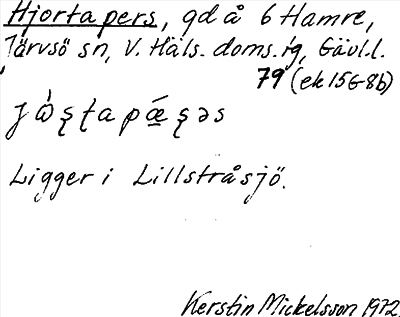 Hjortapers, gd å 6 Hamre,
Järvsö sn, V. Häls. doms.rg, Gävl.l.
79 (ek 15G8b)
Ligger i Lillstråsjö.
Kerstin Mickelsson 1972